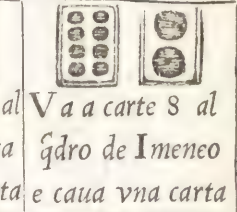 al V a a carte 8 al
a q̃dro de Imeneo
ta e caua vna carta